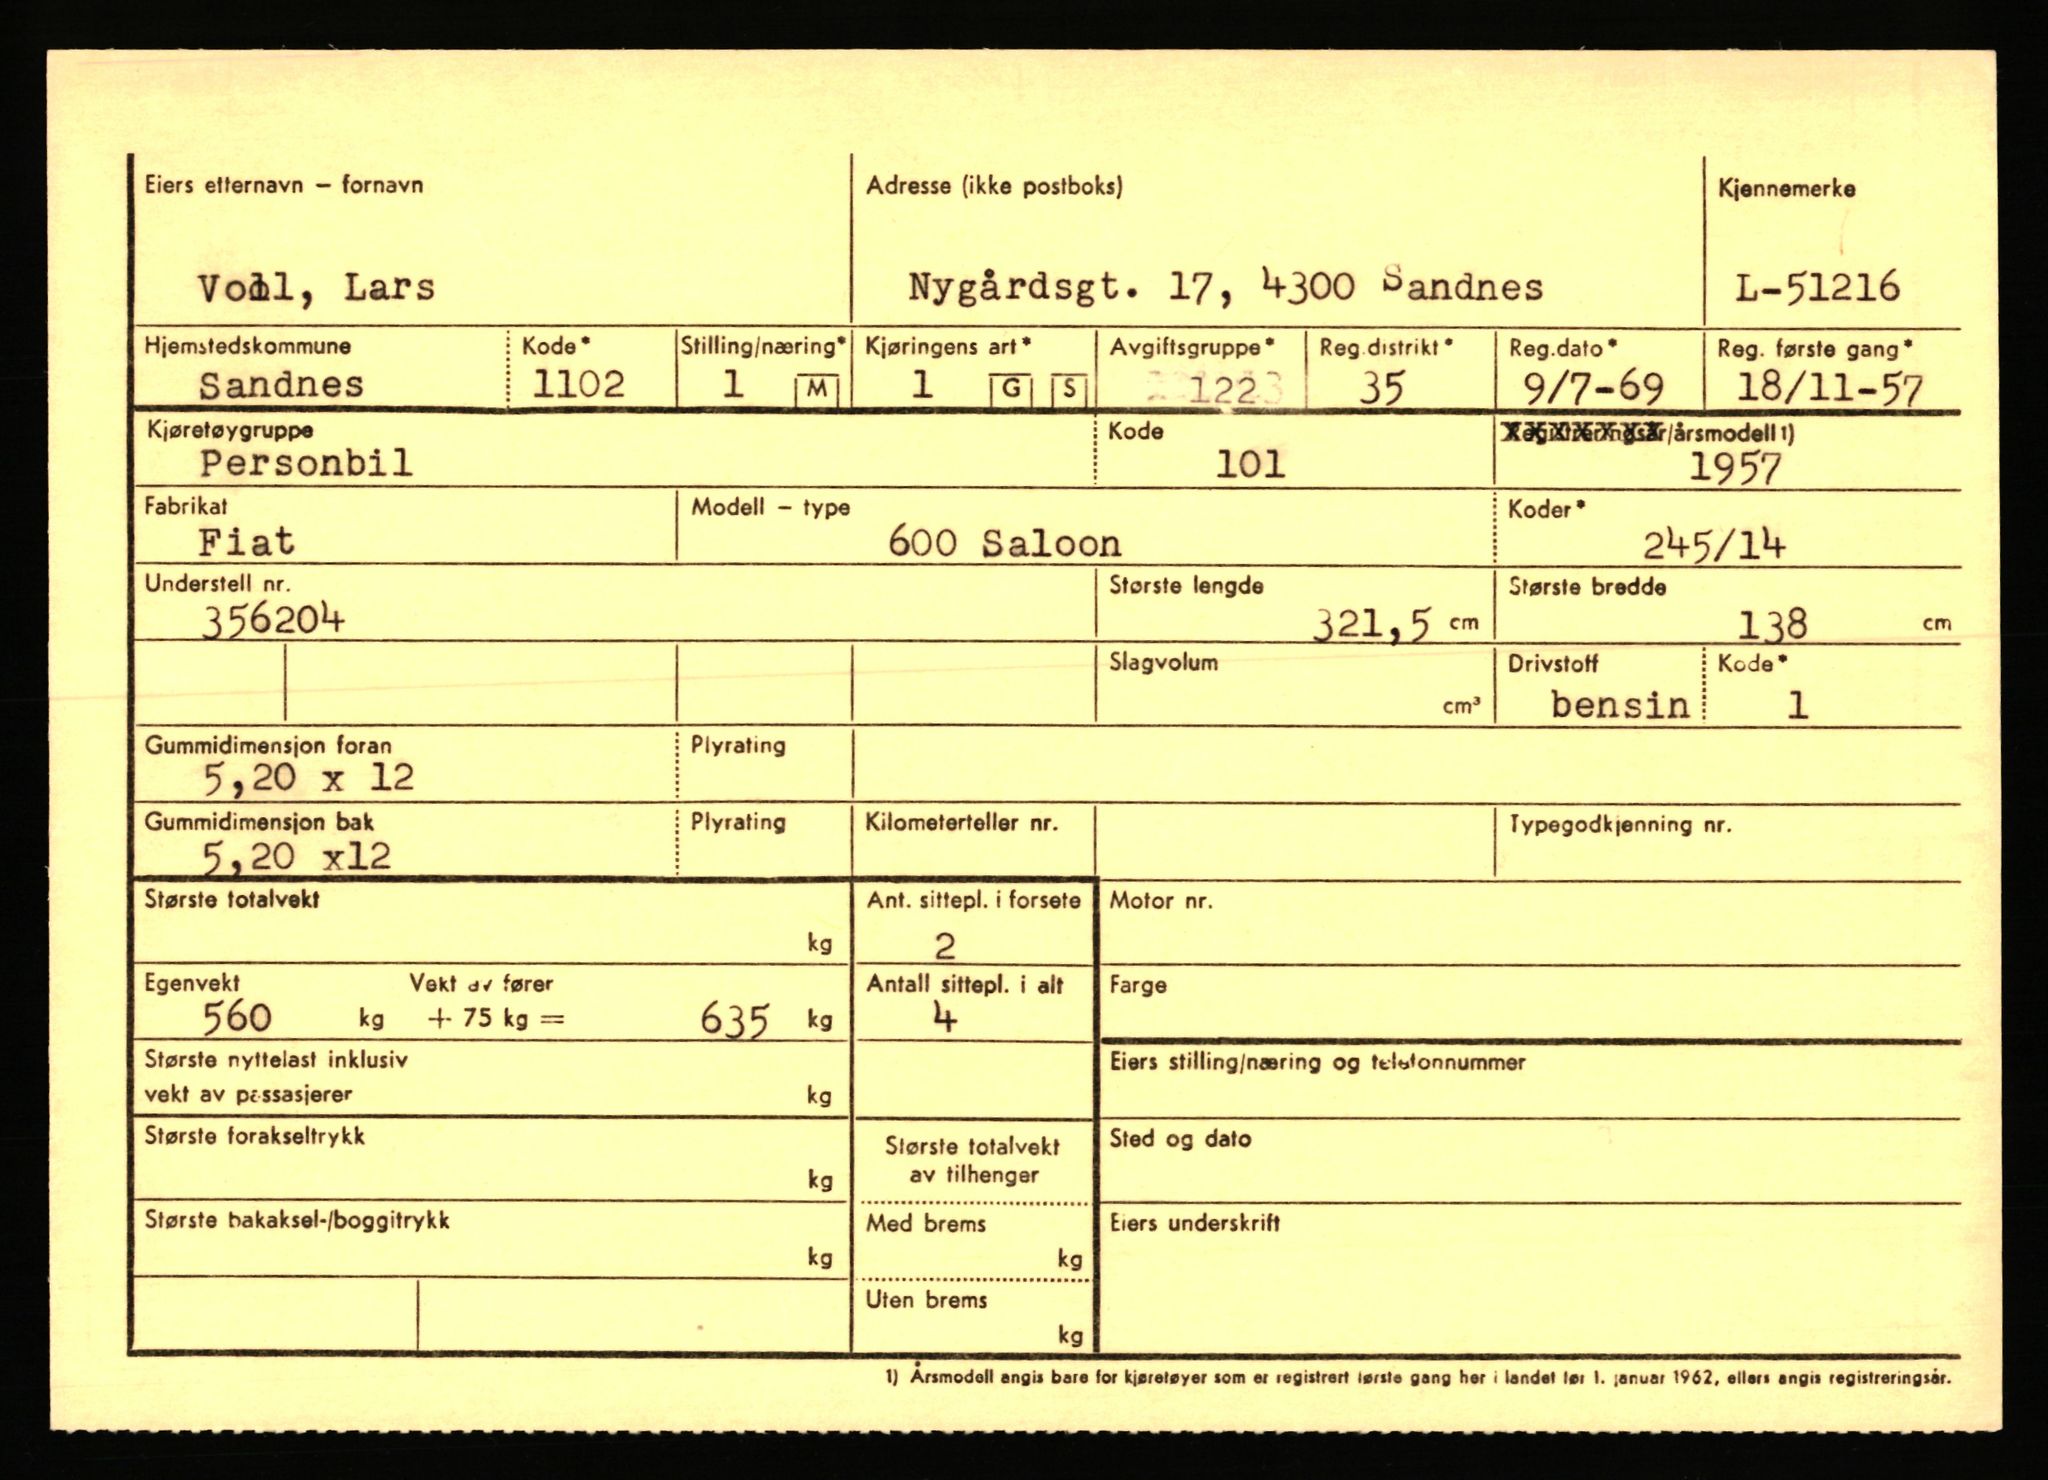 Eiers etternavn – fornavn
Adresse (ikke postboks)
Kjennemerke
Voll, Lars
Nygårdsgt. 17, 4300 Sandnes
L-51216
Hjemstedskommune
Kode*
Stilling/næring*
Kjøringens art*
Avgiftsgruppe*
Reg.distrikt*
Reg.dato*
Reg. første gang*
Sandnes
1102
1 M
1 G S
122
35
9/7-69
18/11-57
Kjøretøygruppe
Kode
Registreringsår/årsmodell 1)
Personbil
101
1957
Fabrikat
Modell – type
Koder*
Fiat
600 Saloon
245/14
Understell nr.
Største lengde
Største bredde
356204
321,5 cm
138 cm
Slagvolum
Drivstoff
Kode*
cm³
bensin
1
Gummidimensjon foran
Plyrating
5,20 x 12
Gummidimensjon bak
Plyrating
Kilometerteller nr.
Typegodkjenning nr.
5,20 x12
Største totalvekt
Ant. sittepl. i forsete
Motor nr.
kg
2
Egenvekt
Vekt av fører
Antall sittepl. i alt
Farge
560 kg + 75 kg = 635 kg
4
Største nyttelast inklusiv
vekt av passasjerer
kg
Eiers stilling/næring og telefonnummer
Største forakseltrykk
kg
Største totalvekt
av tilhenger
Sted og dato
Største bakaksel-/boggitrykk
kg
Med brems
kg
Eiers underskrift
Uten brems
kg
1) Årsmodell angis bare for kjøretøyer som er registrert første gang her i landet før 1. januar 1962, ellers angis registreringsår.